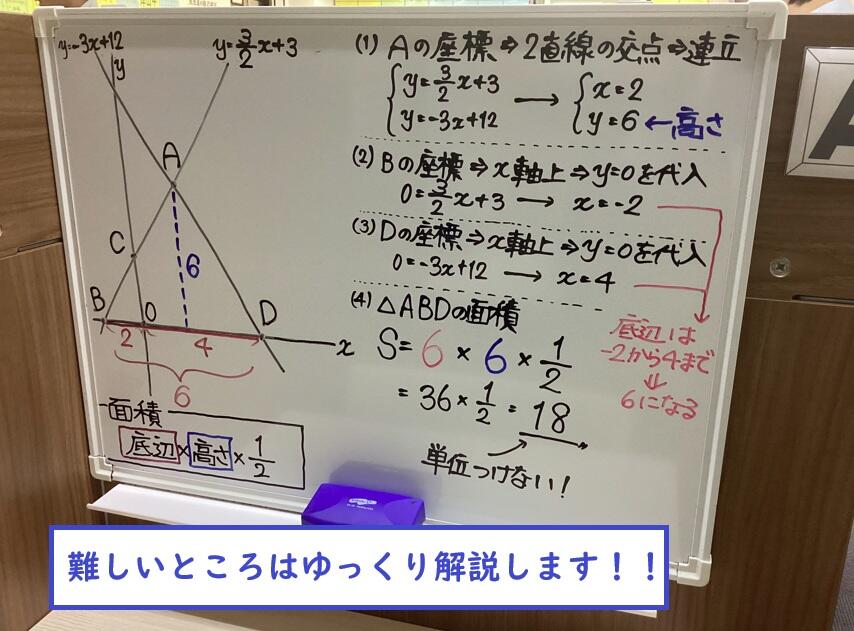 y=-3x+12
y
y=3/2x+3
A
C
6
B
O
D
2
4
x
6
面積
底辺×高さ×1/2
(1) Aの座標⇒2直線の交点⇒連立
{y=3/2x+3 → {x=2
{y=-3x+12 {y=6←高さ
(2) Bの座標⇒x軸上⇒y=0を代入
0=3/2x+3 → x=-2
(3) Dの座標⇒x軸上⇒y=0を代入
0=-3x+12 → x=4
(4) △ABDの面積
S=6×6×1/2
=36×1/2=18
単位つけない!
底辺は
-2から4まで
⇓
6になる
難しいところはゆっくり解説します!!